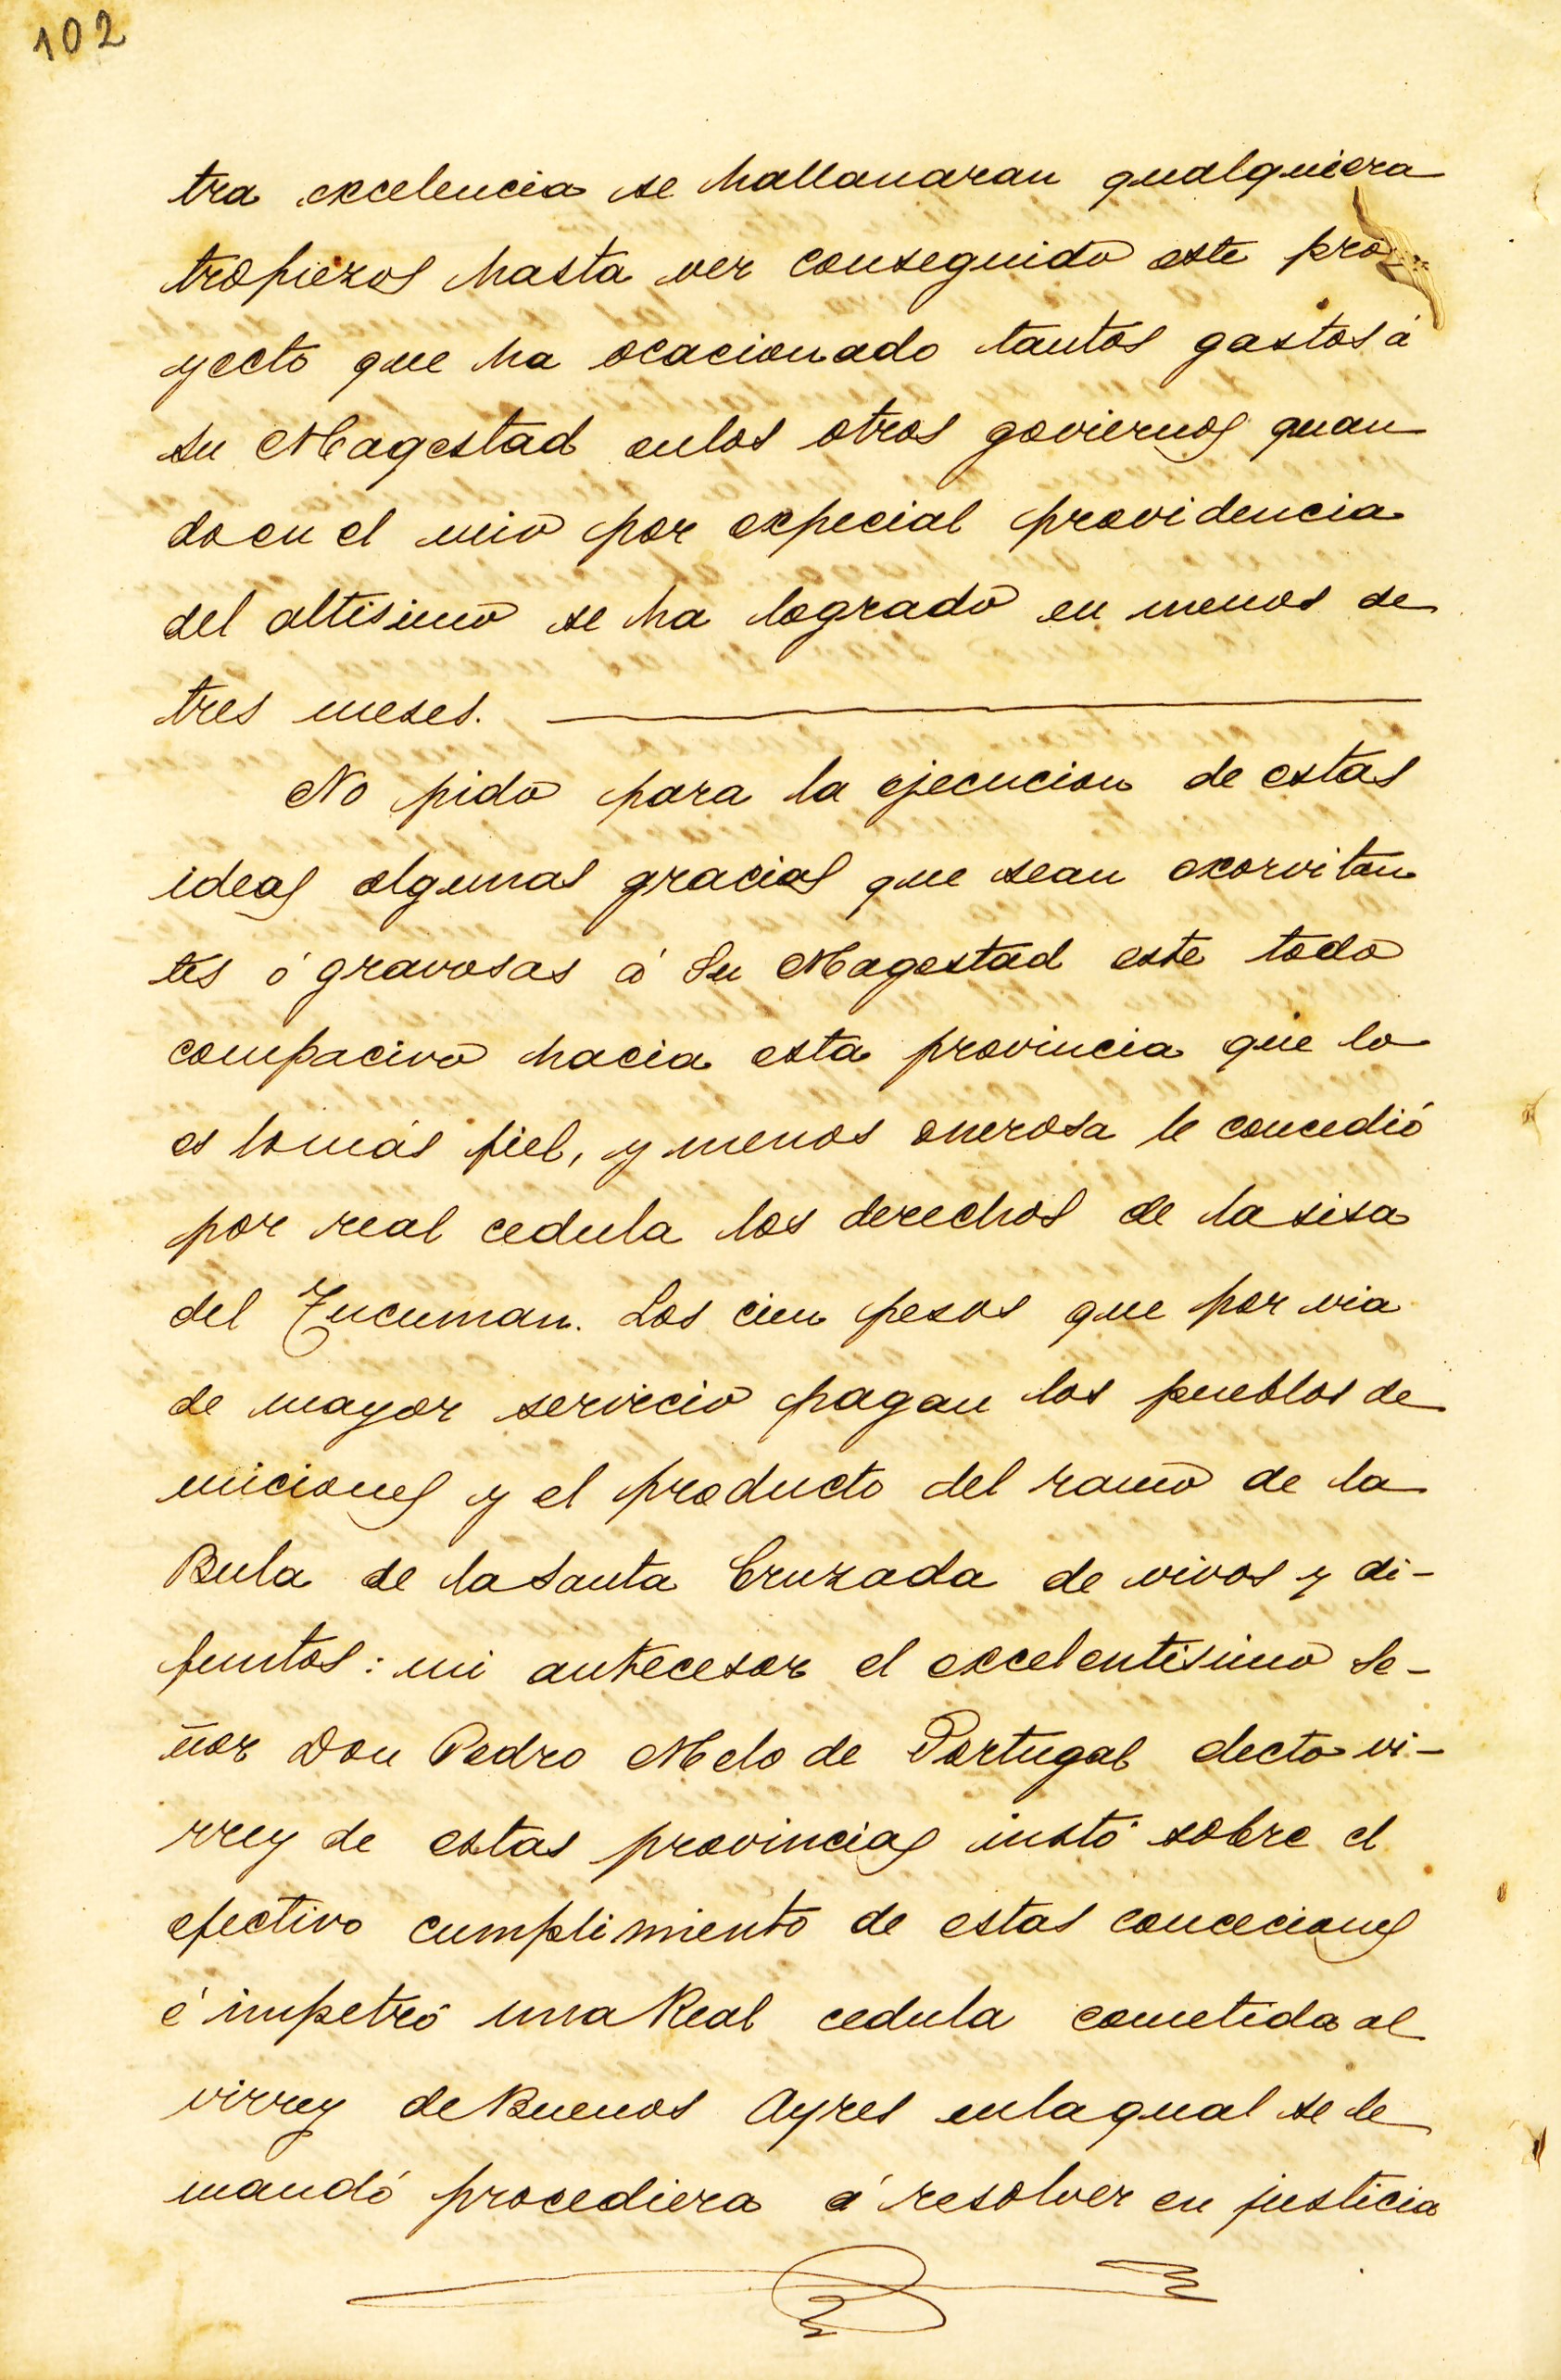 102
tra excelencia se hallanaran qualquiera
tropiezos hasta ver conseguido este pro-
yecto que ha ocacionado tantos gastos á
su Magestad enlos otros goviernos quan
do en el mio por expecial providencia
del altisimo se ha logrado en menos de
tres meses.
No pido para la ejecucion de estas
ideas algunas gracias que sean exorvitan
tes ó gravosas á Su Magestad este todo
compacivo hacia esta provincia que lo
es lomás fiel, y menos onerosa le concedió
por real cedula los derechos de la sisa
del Tucuman. Los cien pesos que por via
de mayor servicio pagan los pueblos de
miciones y el producto del ramo de la
Bula de la Santa Cruzada de vivos y di-
funtos: mi antecesor el excelentisimo Se-
ñor Don Pedro Melo de Portugal electo vi-
rrey de estas provincias instó sobre el
efectivo cumplimiento de estas conceciones
é impetró una Real cedula cometida al
virrey de Buenos Ayres enlaqual se le
mandó procediera á resolver en justicia